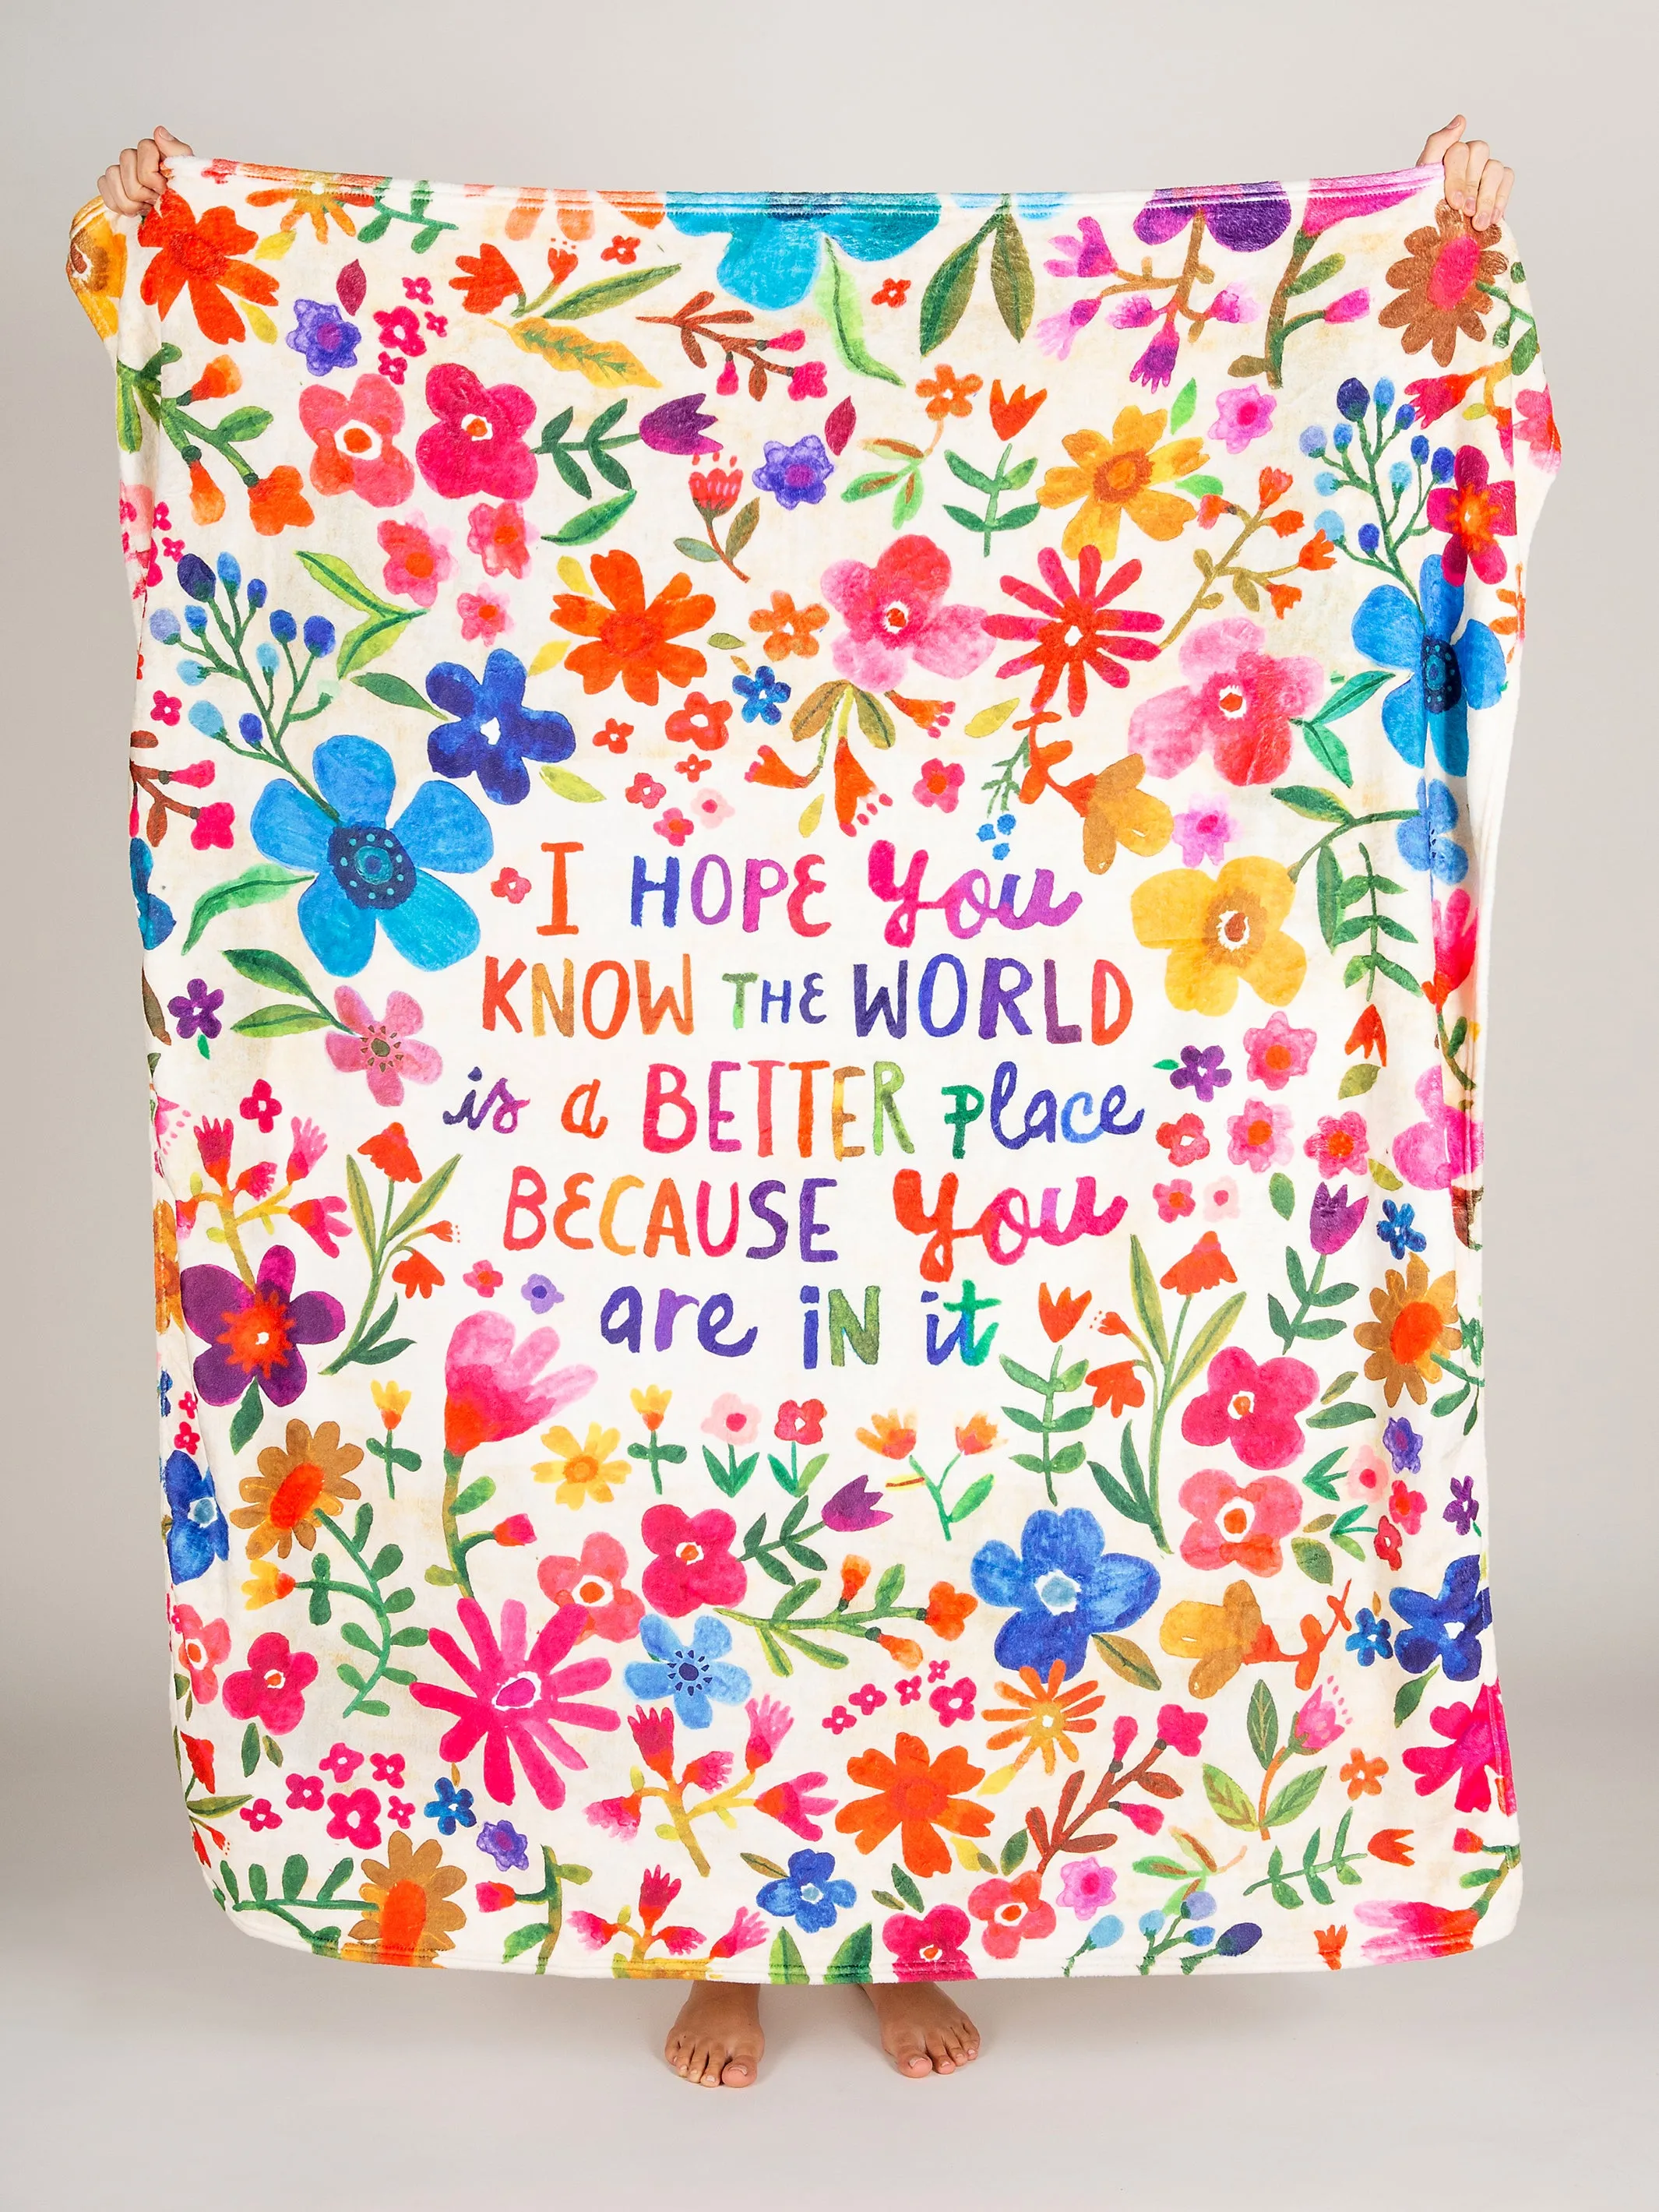 I HOPE you
KNOW THE WORLD
is a BETTER place
BECAUSE you
are iN it